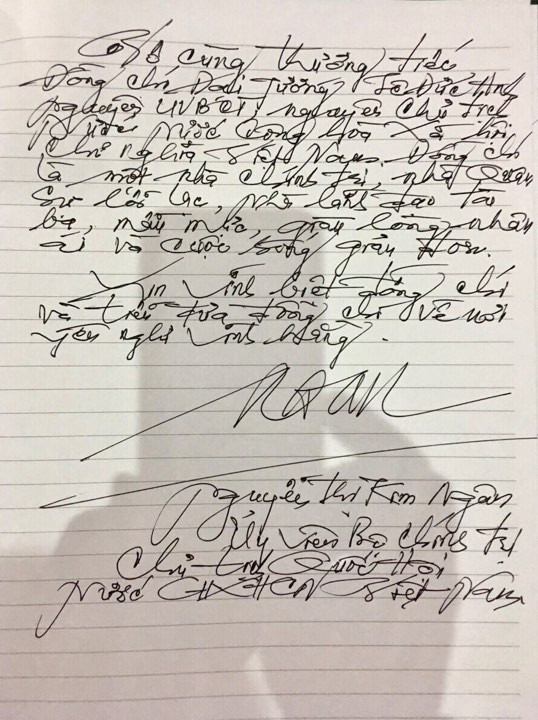 Vô cùng thương tiếc
Đồng chí Đại tướng Lê Đức Anh
nguyên UVBCT, nguyên Chủ tịch
nước Cộng hòa Xã hội
Chủ nghĩa Việt Nam. Đồng chí
là một nhà chính trị, nhà quân
sự lỗi lạc, nhà lãnh đạo tài
ba, mẫu mực, giàu lòng nhân
ái và cuộc sống giản đơn.
Xin vĩnh biệt đồng chí
và tiễn đưa đồng chí về nơi
yên nghỉ vĩnh hằng.
Nguyễn Thị Kim Ngân
Ủy viên Bộ Chính trị
Chủ tịch Quốc Hội
Nước CHXHCN Việt Nam